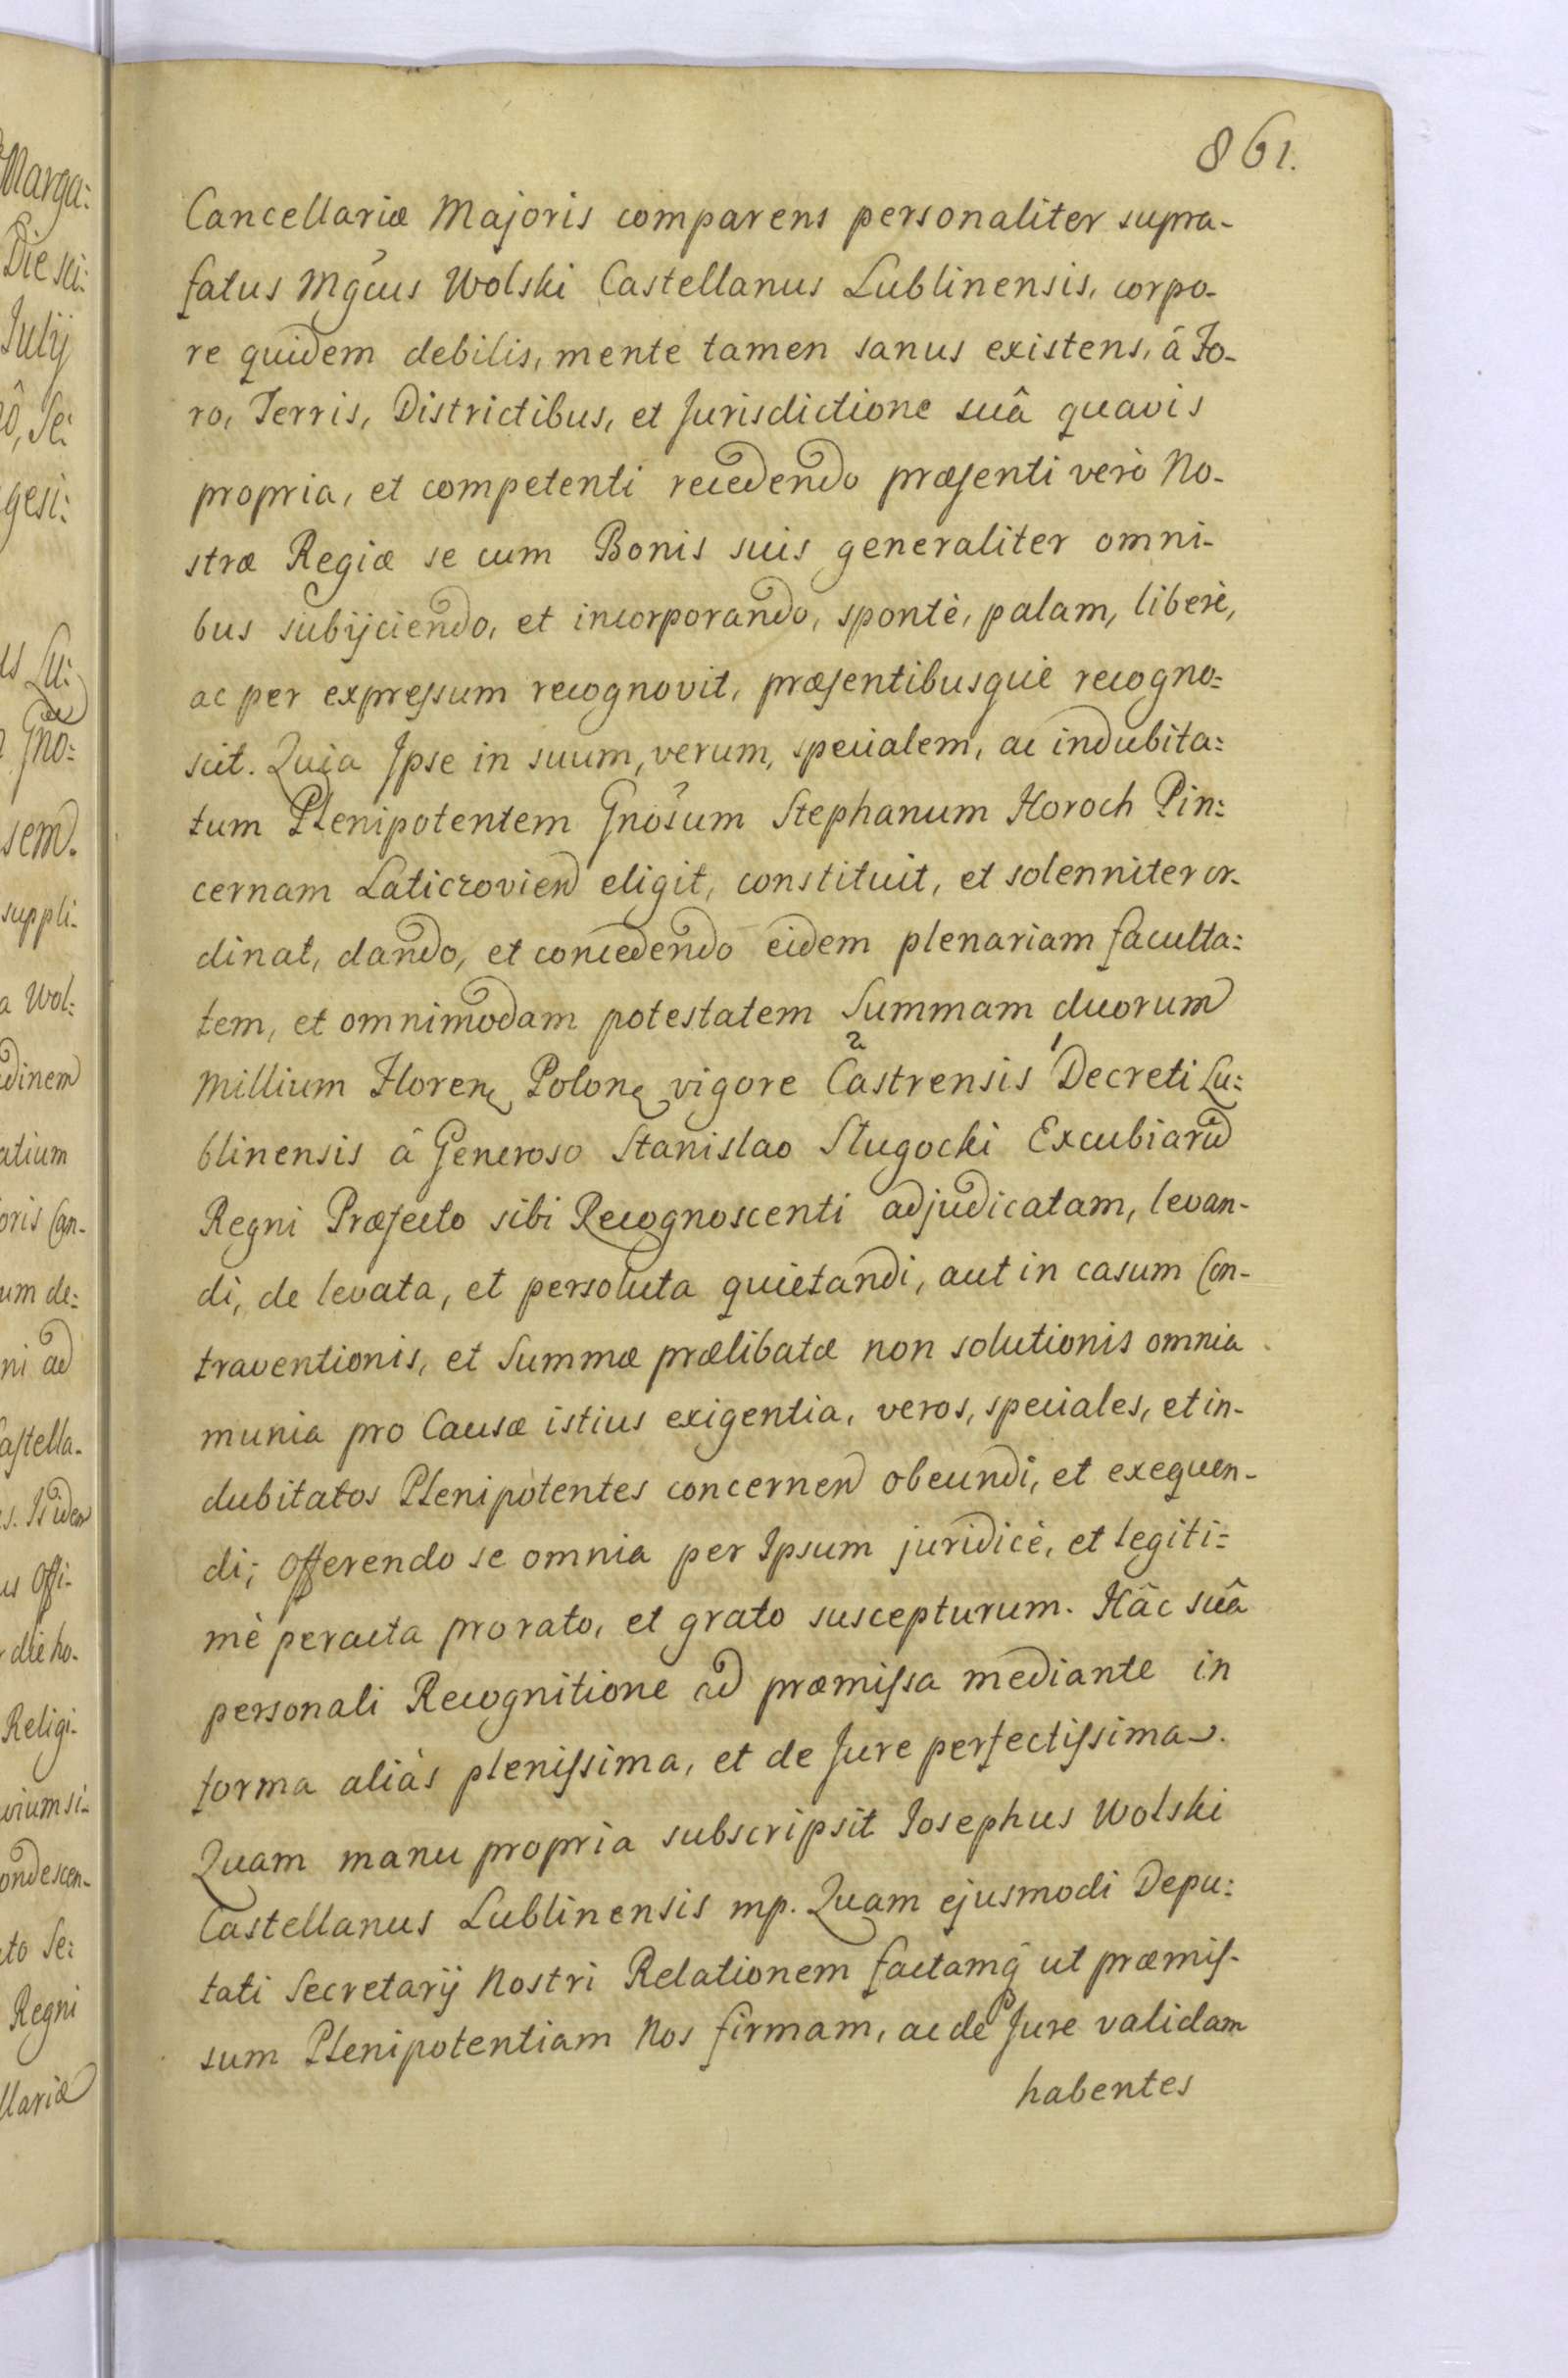 861.
Cancellariæ Majoris comparens personaliter supra-
fatus Mgcus Wolski Castellanus Lublinensis, corpo-
re quidem debilis, mente tamen sanus existens, â Fo-
ro, Terris, Districtibus, et Jurisdictione suâ quavis
propria, et competenti recedendo præsenti verò No-
stræ Regiæ se cum Bonis suis generaliter omni-
bus subijciendo, et incorporando, spontè, palam, liberè,
ac per expressum recognovit, præsentibusque recogno=
scit. Quia Ipse in suum, verum, specialem, ac indubita=
tum Plenipotentem Gnosum Stephanum Horoch Pin=
cernam Laticzovien eligit, constituit, et solenniter or-
dinat, dando, et concedendo eidem plenariam faculta=
tem, et omnimodam potestatem Summam duorum
2 1
Millium Floren Polon vigore Castrensis Decreti Lu=
blinensis â Generoso Stanislao Sługocki Excubiarū
Regni Præfecto sibi Recognoscenti adjudicatam, levan-
di, de levata, et persoluta quietandi, aut in casum Con-
traventionis, et Summæ prælibatæ non solutionis omnia
munia pro Causæ istius exigentia, veros, speciales, et in-
dubitatos Plenipotentes concernen obeundi, et exequen-
di; offerendo se omnia per Ipsum juridicè, et legiti=
mè peracta pro rato, et grato suscepturum. Hâc suâ
personali Recognitione ad præmissa mediante in
forma aliàs plenissima, et de Jure perfectissima.
Quam manu propria subscripsit Josephus Wolski
Castellanus Lublinensis mp. Quam ejusmodi Depu=
tati Secretarij Nostri Relationem factamq̃ ut præmis-
sum Plenipotentiam Nos firmam, ac de Jure validam
habentes